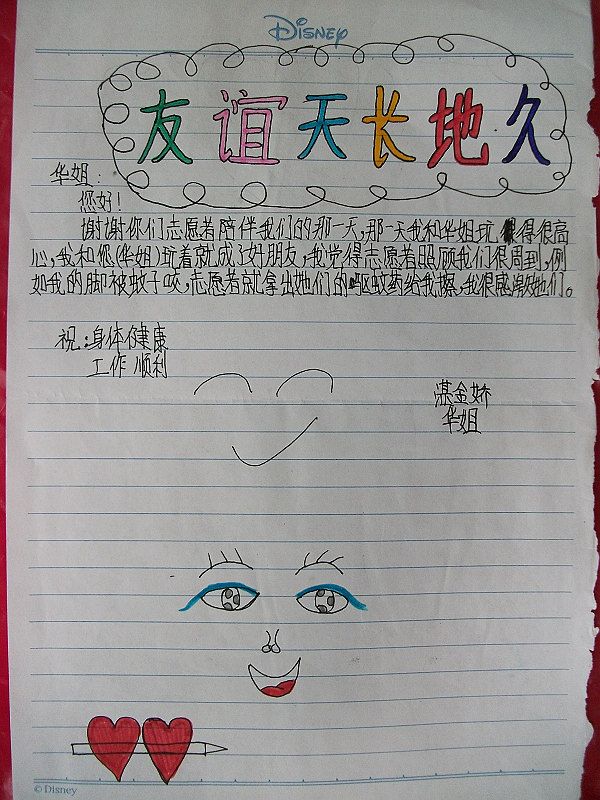 Disney
友谊天长地久
华姐：
您好！
谢谢你们志愿者陪伴我们的那一天，那一天我和华姐玩得很高
心，我和您（华姐）玩着就成了好朋友，我觉得志愿者照顾我们很周到，例
如我的脚被蚊子咬，志愿者就拿出她们的驱蚊药给我擦，我很感激她们。
祝：身体健康
工作顺利
湛金娇
华姐
© Disney